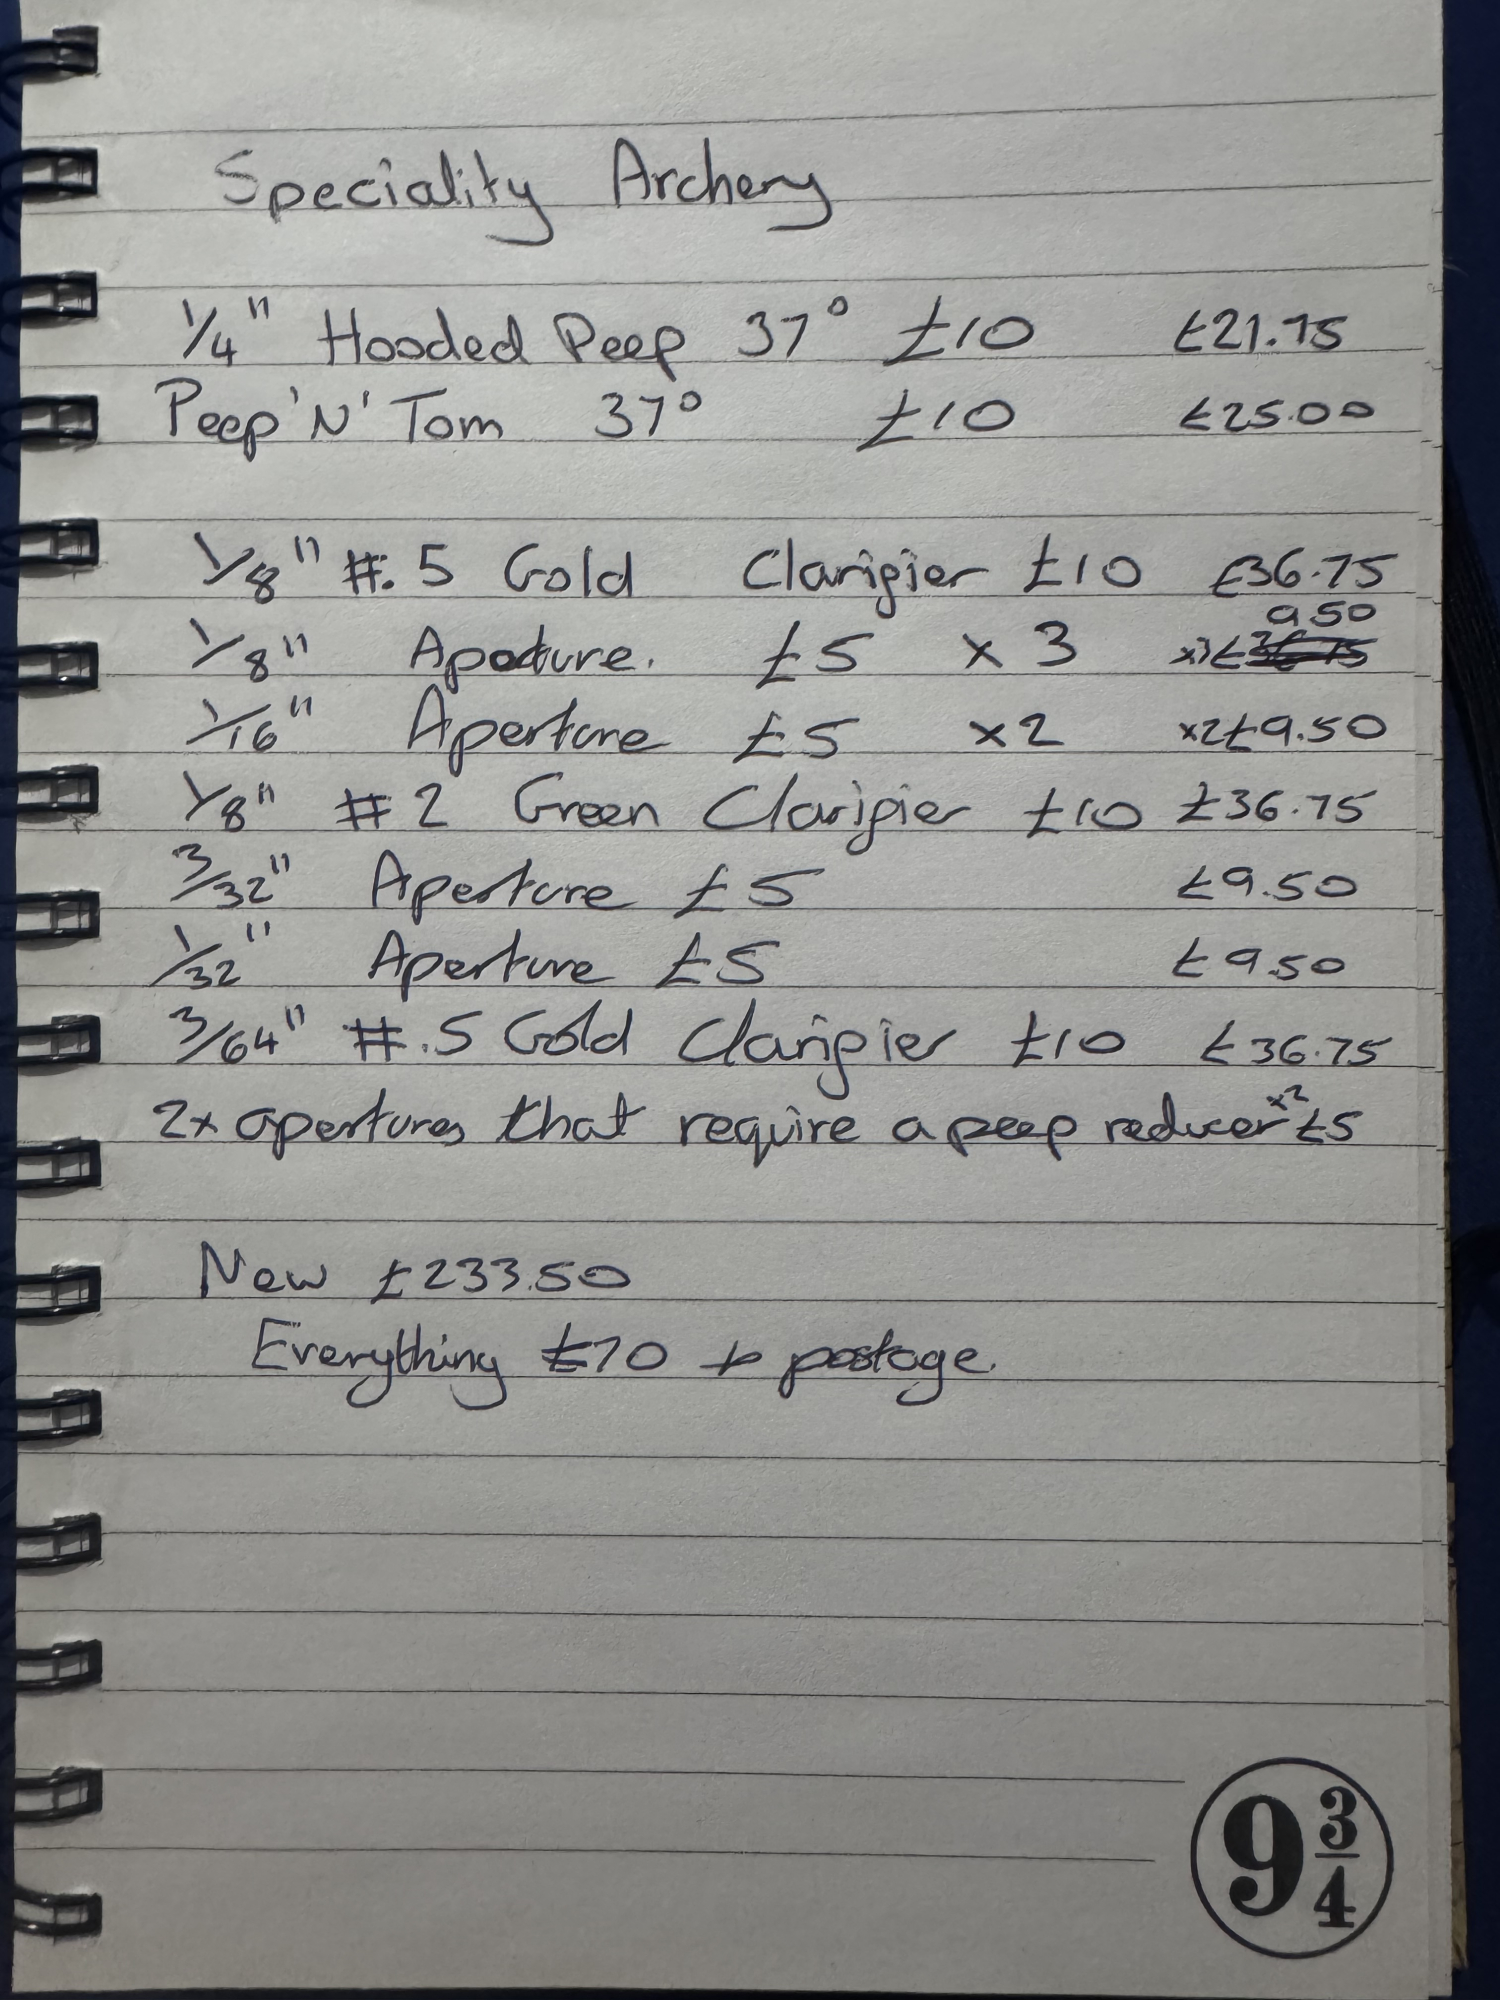 Speciality Archery
1/4" Hooded Peep 37° £10 £21.75
Peep 'N' Tom 37° £10 £25.00
1/8" #.5 Gold Clarifier £10 £36.75
1/8" Aperture. £5 x 3 x3 £9.50
1/16" Aperture £5 x2 x2 £9.50
1/8" #2 Green Clarifier £10 £36.75
3/32" Aperture £5 £9.50
1/32" Aperture £5 £9.50
3/64" #.5 Gold Clarifier £10 £36.75
2x apertures that require a peep reducer x2 £5
New £233.50
Everything £70 + postage.
9 3/4